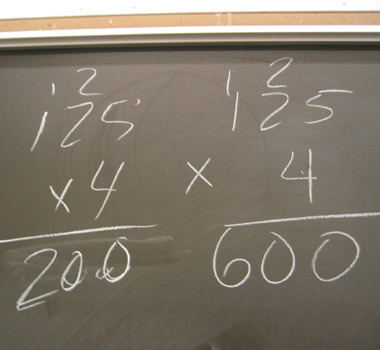 1 2
125
x 4
200
1 2
125
x 4
600